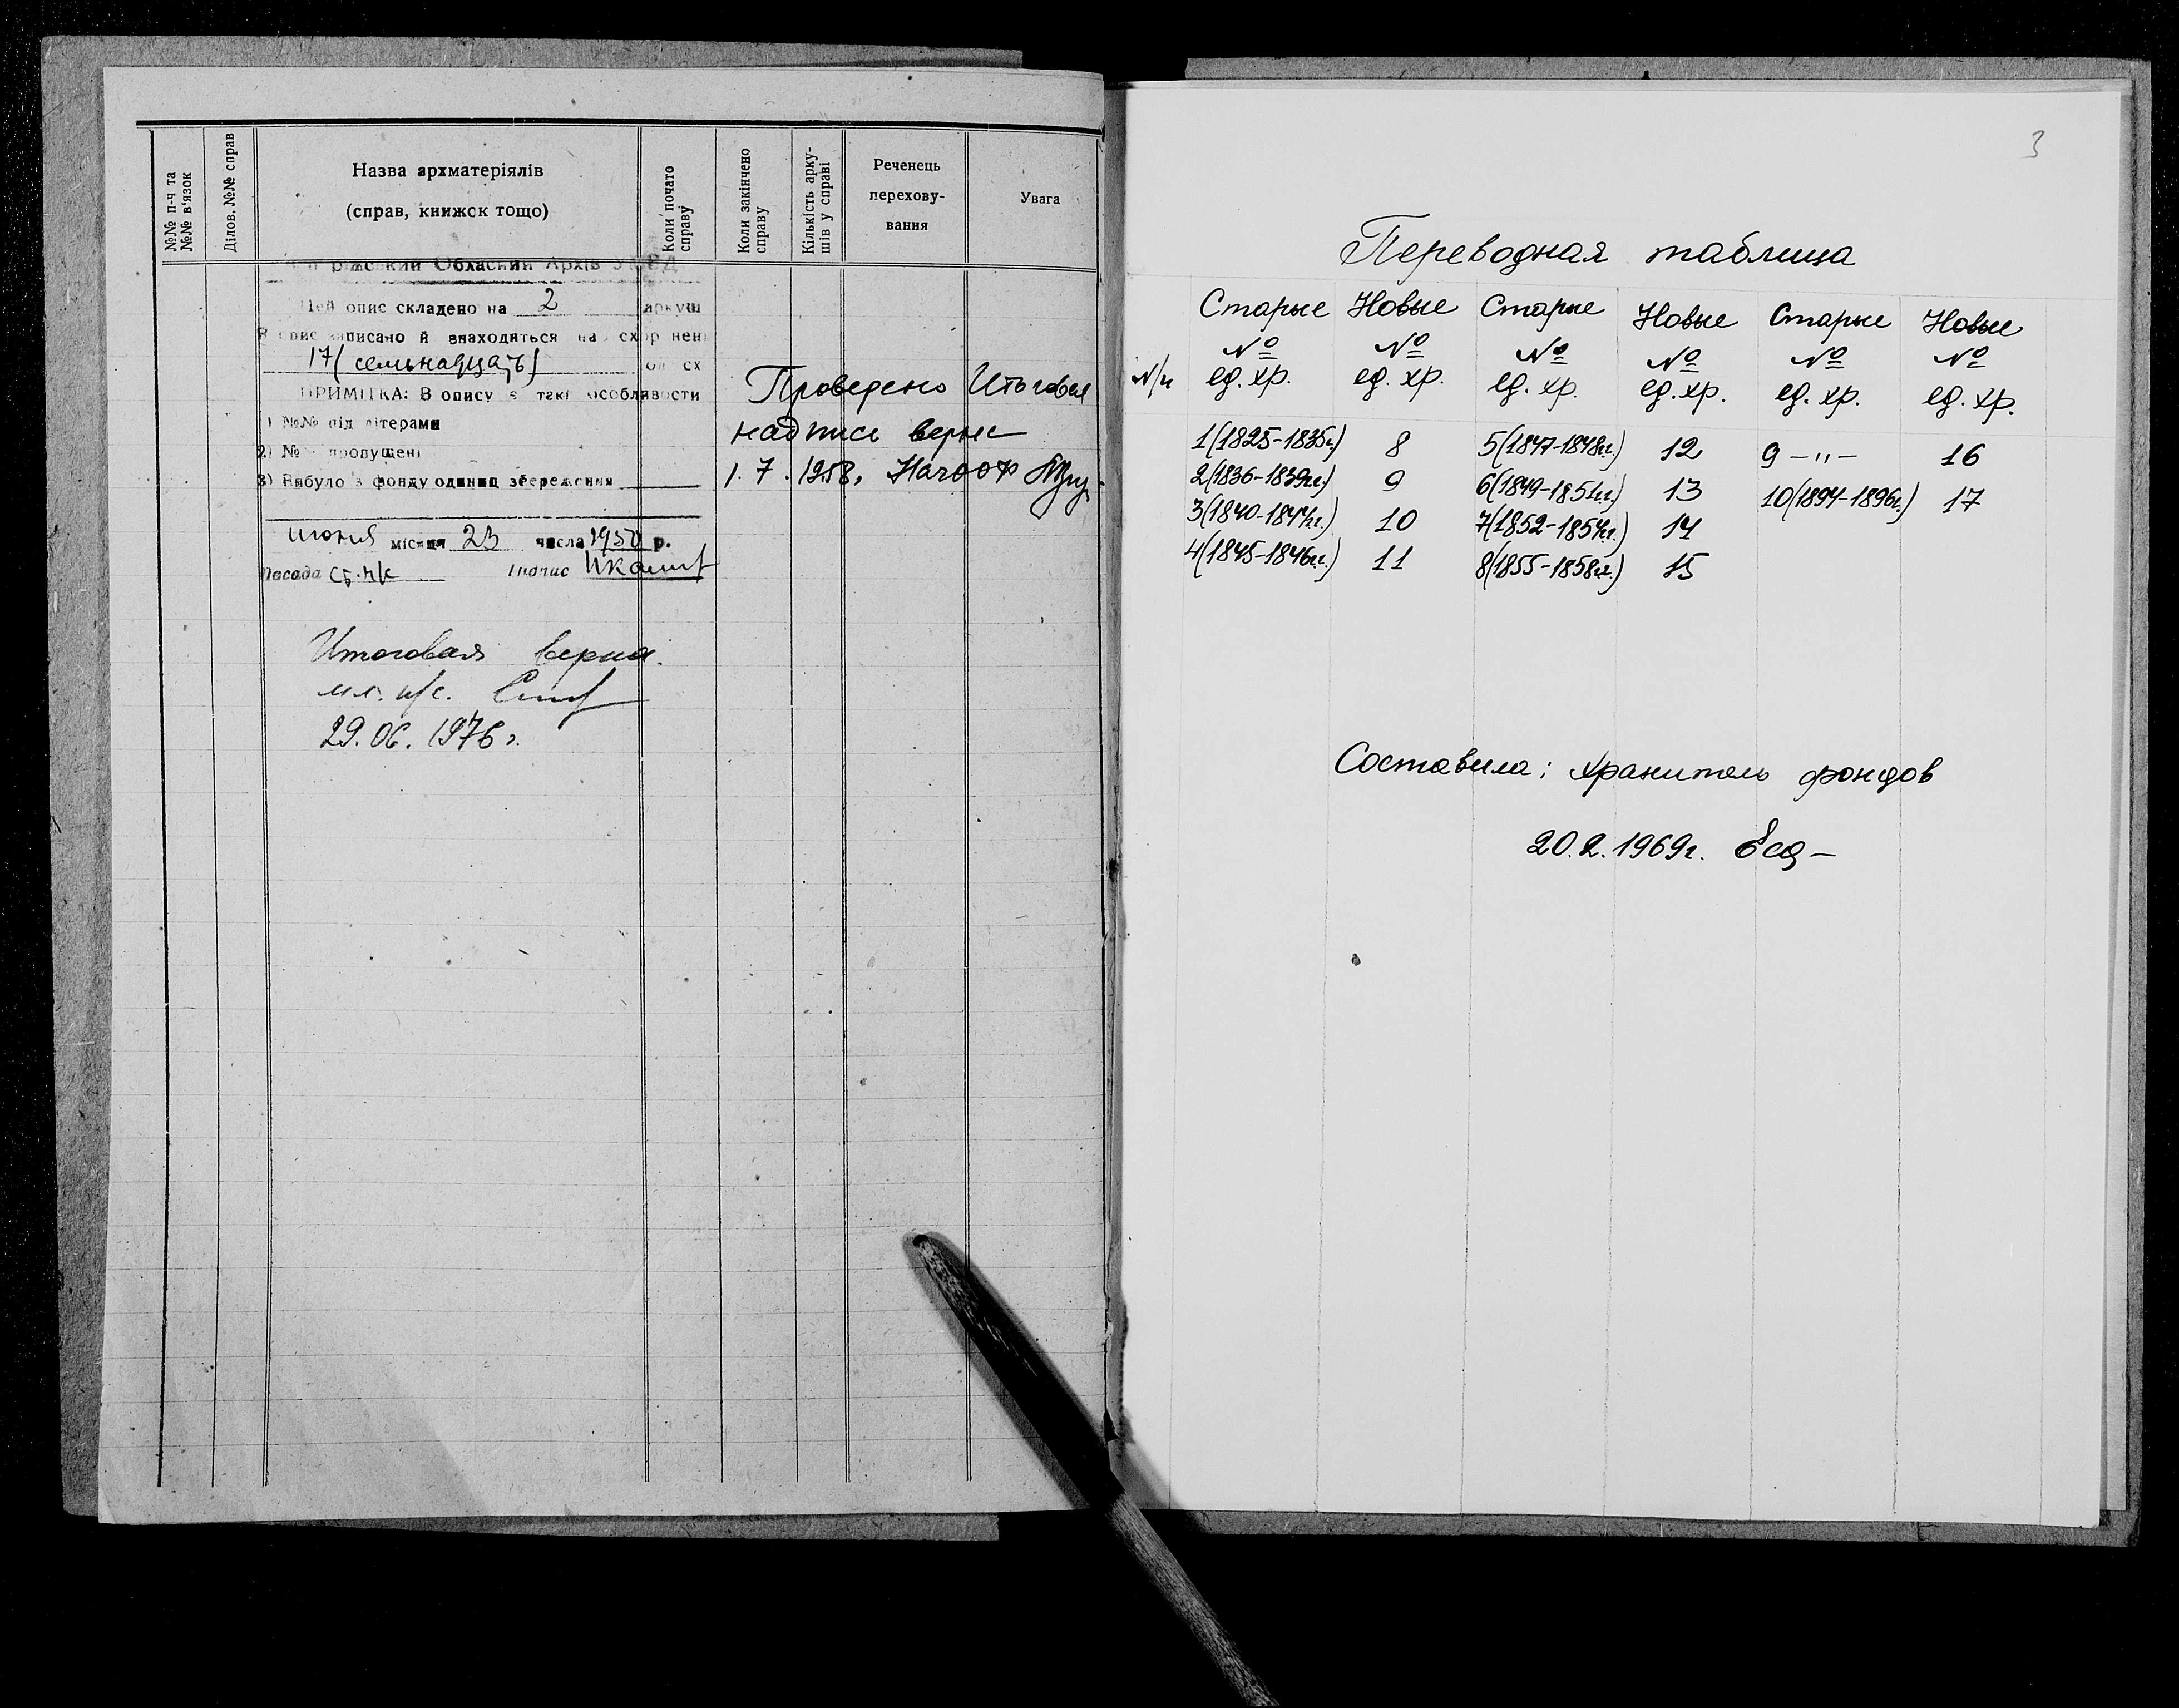 №№ п-ч та
№№ в'язок
Ділов. №№ справ
Назва архматеріялів
(справ, книжок тощо)
Коли почато
справу
Коли закінчено
справу
Кількість арку-
шів у справі
Реченець
перехову-
вання
Увага
Обласний Архів
Цей опис складено на 2 аркуш
В опис записано й знаходиться на схоронен
17 (семьнадцать) од сх
ПРИМІТКА: В опису є такі особливости
1) №№ під літерами
2) №№ пропущені
3) Вибуло з фонду одиниц збереження
июня місяця 23 числа 1950 р.
Посада ст. н/с Підпис
Проведено Итоговая
надпись верна
1.7.1958.
Итоговая верна.
мл. н/с.
29.06.1976 г.
3
Переводная таблица
Старые Новые Старые Новые Старые Новые
№ № № № № №
ед. хр. ед. хр. ед. хр. ед. хр. ед. хр. ед. хр.
1(1825-1835г.) 8 5(1847-1848гг.) 12 9 -"- 16
2(1836-1839гг.) 9 6(1849-1851гг.) 13 10(1894-1896г.) 17
3(1840-1844гг.) 10 7(1852-1854гг.) 14
4(1845-1846гг.) 11 8(1855-1858гг.) 15
Составила: хранитель фондов
20.2.1969г.